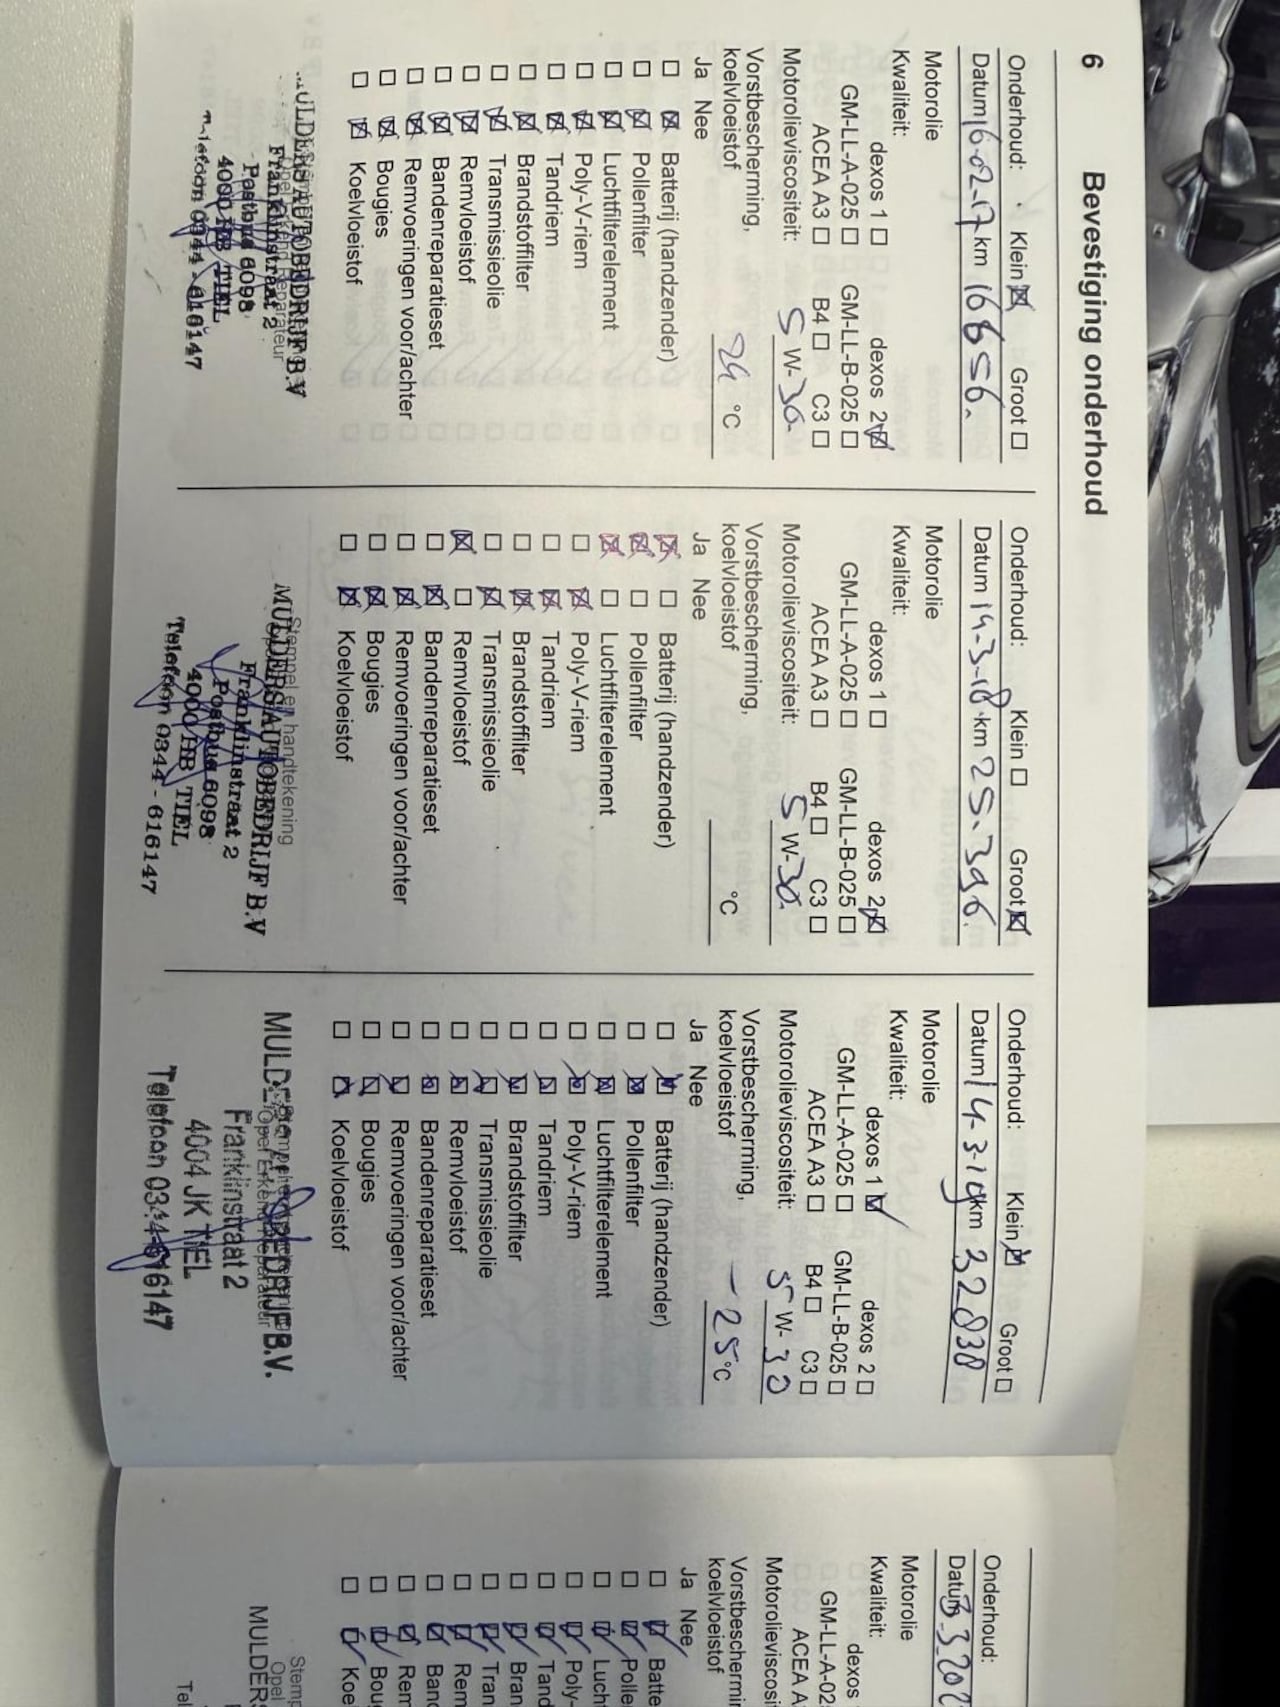 6 Bevestiging onderhoud
Onderhoud: Klein ☒ Groot ☐
Datum 16-02-17 km 16656.
Motorolie
Kwaliteit: dexos 1 ☐ dexos 2 ☒
GM-LL-A-025 ☐ GM-LL-B-025 ☐
ACEA A3 ☐ B4 ☐ C3 ☐
Motorolieviscositeit: 5 W-30
Vorstbescherming,
koelvloeistof 24 °C
Ja Nee
☐ ☒ Batterij (handzender)
☐ ☒ Pollenfilter
☐ ☒ Luchtfilterelement
☐ ☒ Poly-V-riem
☐ ☒ Tandriem
☐ ☒ Brandstoffilter
☐ ☒ Transmissieolie
☐ ☒ Remvloeistof
☐ ☒ Bandenreparatieset
☐ ☒ Remvoeringen voor/achter
☐ ☒ Bougies
☐ ☒ Koelvloeistof
MULDERS AUTOBEDRIJF B.V
Franklinstraat 2
Postbus 6098
4000 HB TIEL
Telefoon 0344 - 616147
Onderhoud: Klein ☐ Groot ☒
Datum 14-3-18 km 25.396.
Motorolie
Kwaliteit: dexos 1 ☐ dexos 2 ☒
GM-LL-A-025 ☐ GM-LL-B-025 ☐
ACEA A3 ☐ B4 ☐ C3 ☐
Motorolieviscositeit: 5 W-30.
Vorstbescherming,
koelvloeistof °C
Ja Nee
☒ ☐ Batterij (handzender)
☒ ☐ Pollenfilter
☒ ☐ Luchtfilterelement
☐ ☒ Poly-V-riem
☐ ☒ Tandriem
☐ ☒ Brandstoffilter
☐ ☒ Transmissieolie
☒ ☐ Remvloeistof
☐ ☒ Bandenreparatieset
☐ ☒ Remvoeringen voor/achter
☐ ☒ Bougies
☐ ☒ Koelvloeistof
Stempel en handtekening
MULDERS AUTOBEDRIJF B.V
Franklinstraat 2
Postbus 6098
4000 HB TIEL
Telefoon 0344 - 616147
Onderhoud: Klein ☒ Groot ☐
Datum 14-3-19 km 32838
Motorolie
Kwaliteit: dexos 1 ☒ dexos 2 ☐
GM-LL-A-025 ☐ GM-LL-B-025 ☐
ACEA A3 ☐ B4 ☐ C3 ☐
Motorolieviscositeit: 5 W-30
Vorstbescherming,
koelvloeistof -25 °C
Ja Nee
☐ ☒ Batterij (handzender)
☐ ☒ Pollenfilter
☐ ☒ Luchtfilterelement
☐ ☒ Poly-V-riem
☐ ☒ Tandriem
☐ ☒ Brandstoffilter
☐ ☒ Transmissieolie
☐ ☒ Remvloeistof
☐ ☒ Bandenreparatieset
☐ ☒ Remvoeringen voor/achter
☐ ☒ Bougies
☐ ☒ Koelvloeistof
B.V.
Franklinstraat 2
4004 JK TIEL
Telefoon 0344-616147
Onderhoud:
Datum
Motorolie
Kwaliteit: dexos
GM-LL-A-02
ACEA A
Motorolieviscosit
Vorstbeschermin
koelvloeistof
Ja Nee
☐ ☒ Batte
☐ ☒ Polle
☐ ☒ Luch
☐ ☒ Poly-
☐ ☒ Tand
☐ ☒ Bran
☐ ☒ Tran
☐ ☒ Rem
☐ ☒ Banc
☐ ☒ Rem
☐ ☒ Boug
☐ ☒ Koe
Stemp
Opel
MULDERS
Tel